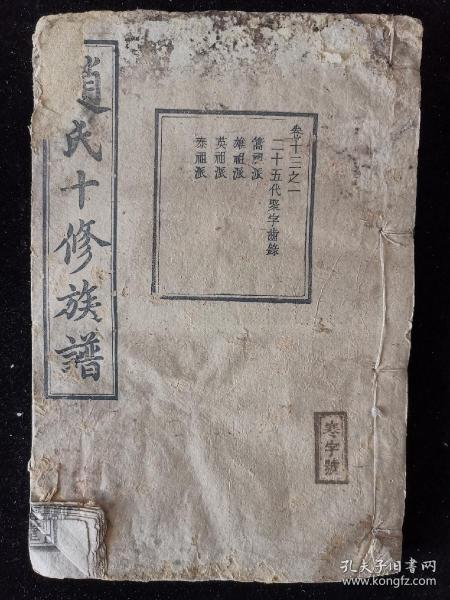 趙氏十修族譜
卷十三之一
二十五代聚字齒錄
簹祖派
雄祖派
英祖派
泰祖派
寒字號
孔夫子旧书网
www.kongfz.com